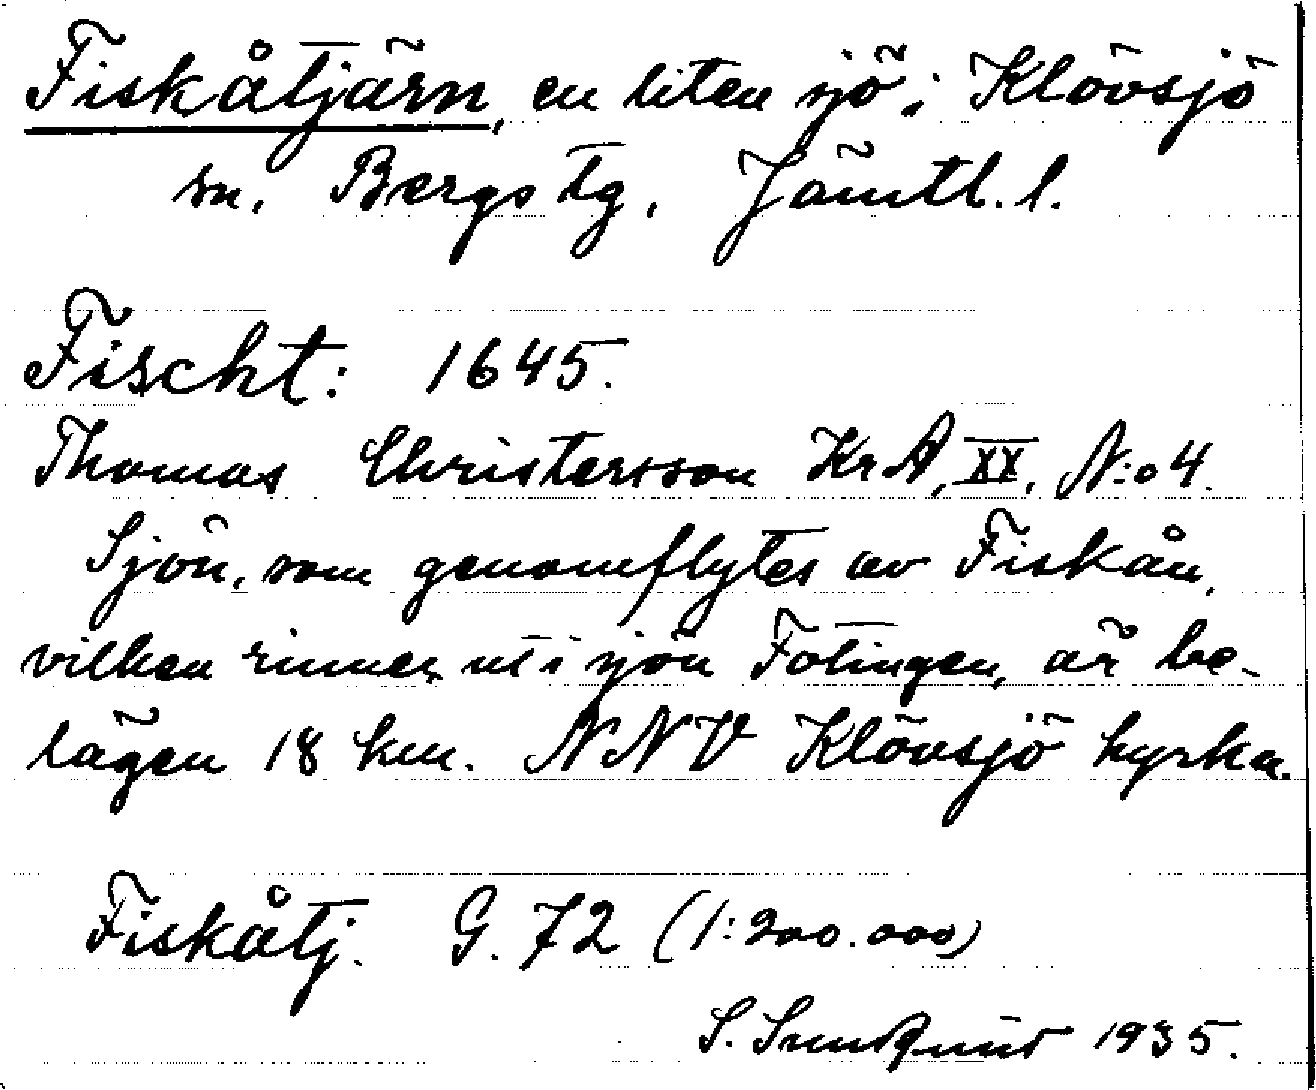 Fiskåtjärn, en liten sjö i Klövsjö
sn. Bergs tg. Jämtl. l.
Fischt: 1645.
Thomas Christersson KrA, XX, N:o 4.
Sjön, som genomflytes av Fiskån,
vilken rinner ut i sjön Fotingen, är be-
lägen 18 km. NNV Klövsjö kyrka.
Fiskåtj. G. 72 (1:200.000)
S. Sundquist 1935.